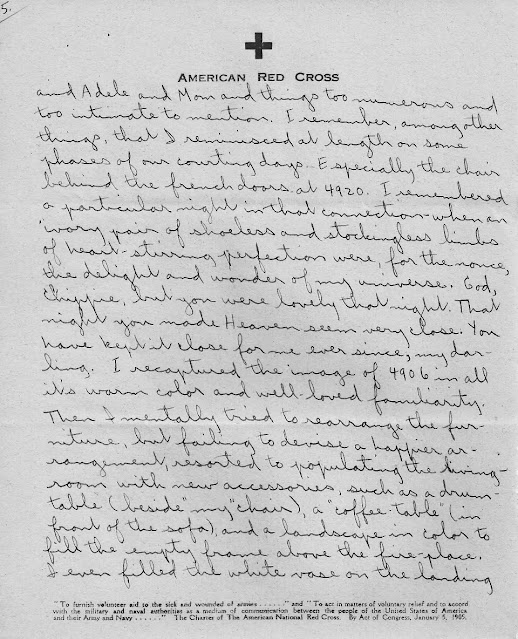 5.
AMERICAN RED CROSS
and Adele and Mom and things too numerous and
too intimate to mention. I remember, among other
things, that I reminisced at length on some
phases of our courting days. Especially the chair
behind the french doors at 4920. I remembered
a particular night in that connection when an
ivory pair of shoeless and stockingless limbs
of heart-stirring perfection were, for the nonce,
the delight and wonder of my universe. God,
but you were lovely that night. That
night you made Heaven seem very close. You
have kept it close for me ever since, my dar-
ling. I recaptured the image of 4906 in all
it's warm color and well-loved familiarity.
Then I mentally tried to rearrange the fur-
niture, but failing to devise a happier ar-
rangement, resorted to populating the living-
room with new accessories, such as a drum-
table (beside "my" chair), a "coffee table" (in
front of the sofa), and a landscape in color to
fill the empty frame above the fire-place.
I even filled the white vase on the landing
"To furnish volunteer aid to the sick and wounded of armies . . . . . ." and "To act in matters of voluntary relief and to accord
with the military and naval authorities as a medium of communication between the people of the United States of America
and their Army and Navy . . . . . ." The Charter of The American National Red Cross. By Act of Congress, January 5, 1905.